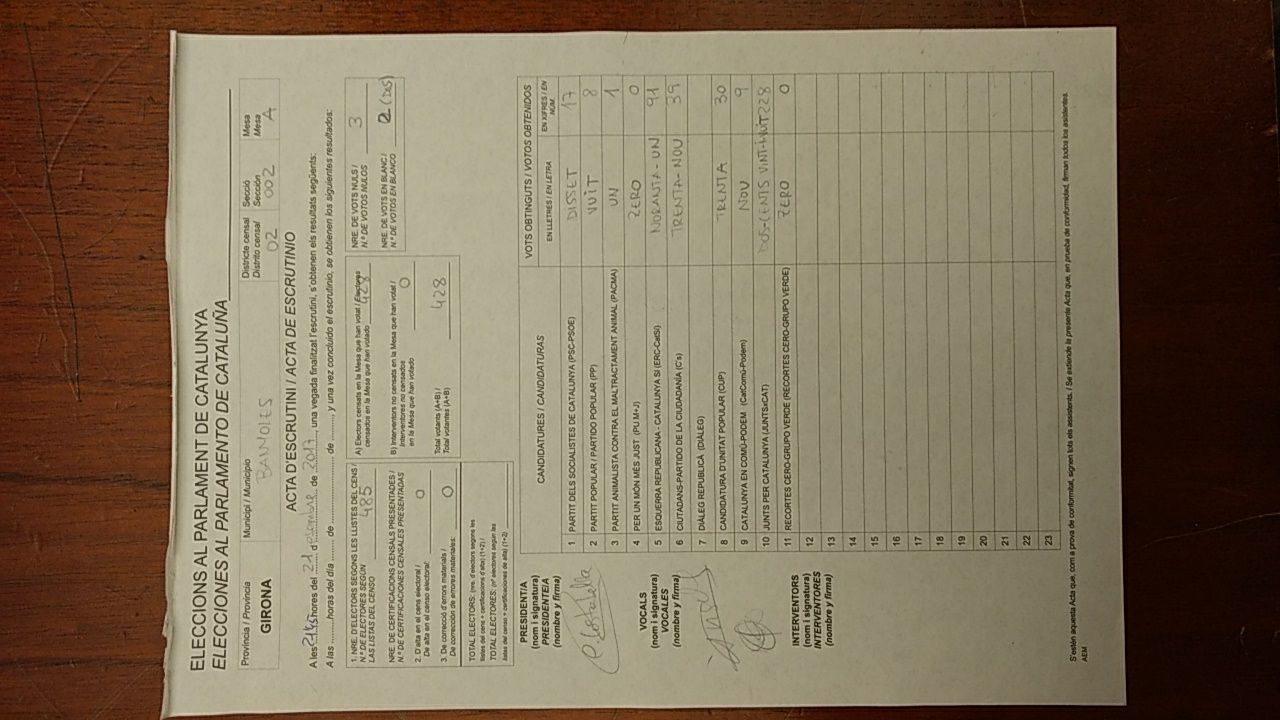 ELECCIONS AL PARLAMENT DE CATALUNYA
ELECCIONES AL PARLAMENTO DE CATALUÑA
Província / Provincia Municipi / Municipio Districte censal Secció Mesa
Distrito censal Sección Mesa
GIRONA BANYOLES 02 002 A
ACTA D'ESCRUTINI / ACTA DE ESCRUTINIO
A les 21:45 hores del 21 d' desembre de 2017, una vegada finalitzat l'escrutini, s'obtenen els resultats següents:
A las ........ horas del día ........ de ........ de ........, y una vez concluido el escrutinio, se obtienen los siguientes resultados:
1. NRE. D'ELECTORS SEGONS LES LLISTES DEL CENS /
N.º DE ELECTORES SEGÚN
LAS LISTAS DEL CENSO 485
NRE. DE CERTIFICACIONS CENSALS PRESENTADES /
N.º DE CERTIFICACIONES CENSALES PRESENTADAS
2. D'alta en el cens electoral /
De alta en el censo electoral: 0
3. De correcció d'errors materials /
De corrección de errores materiales: 0
TOTAL ELECTORS: (nre. d'electors segons les
llistes del cens + certificacions d'alta) (1+2) /
TOTAL ELECTORES: (nº electores según las
listas del censo + certificaciones de alta) (1+2)
A) Electors censats en la Mesa que han votat / Electores
censados en la Mesa que han votado 428
B) Interventors no censats en la Mesa que han votat /
Interventores no censados
en la Mesa que han votado 0
Total votants (A+B) /
Total votantes (A+B) 428
NRE. DE VOTS NULS /
N.º DE VOTOS NULOS 3
NRE. DE VOTS EN BLANC /
N.º DE VOTOS EN BLANCO 2 (DOS)
CANDIDATURES / CANDIDATURAS VOTS OBTINGUTS / VOTOS OBTENIDOS
EN LLETRES / EN LETRA EN XIFRES / EN NÚM.
1 PARTIT DELS SOCIALISTES DE CATALUNYA (PSC-PSOE) DISSET 17
2 PARTIT POPULAR / PARTIDO POPULAR (PP) VUIT 8
3 PARTIT ANIMALISTA CONTRA EL MALTRACTAMENT ANIMAL (PACMA) UN 1
4 PER UN MÓN MÉS JUST (PUM+J) ZERO 0
5 ESQUERRA REPUBLICANA - CATALUNYA SÍ (ERC-CatSí) NORANTA-UN 91
6 CIUTADANS-PARTIDO DE LA CIUDADANÍA (C's) TRENTA-NOU 39
7 DIÀLEG REPUBLICÀ (DIÀLEG)
8 CANDIDATURA D'UNITAT POPULAR (CUP) TRENTA 30
9 CATALUNYA EN COMÚ-PODEM (CatComú-Podem) NOU 9
10 JUNTS PER CATALUNYA (JUNTSxCAT) DOS-CENTS VINT-I-VUIT 228
11 RECORTES CERO-GRUPO VERDE (RECORTES CERO-GRUPO VERDE) ZERO 0
12
13
14
15
16
17
18
19
20
21
22
23
PRESIDENT/A
(nom i signatura)
PRESIDENTE/A
(nombre y firma)
VOCALS
(nom i signatura)
VOCALES
(nombre y firma)
INTERVENTORS
(nom i signatura)
INTERVENTORES
(nombre y firma)
S'estén aquesta Acta que, com a prova de conformitat, signen tots els assistents. / Se extiende la presente Acta que, en prueba de conformidad, firman todos los asistentes.
AEM